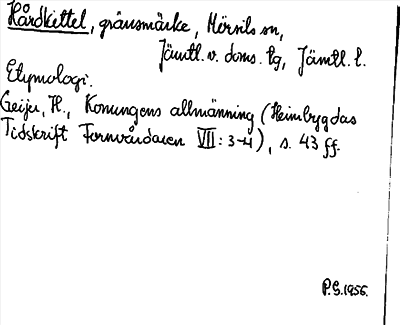 Hårdkittel, gränsmärke, Mörsils sn,
Jämtl. v. doms. tg, Jämtl. l.
Etymologi.
Geijer, H., Konungens allmänning (Heimbygdas
Tidskrift Fornvårdaren VII: 3-4), s. 43 ff.
P.G. 1956.